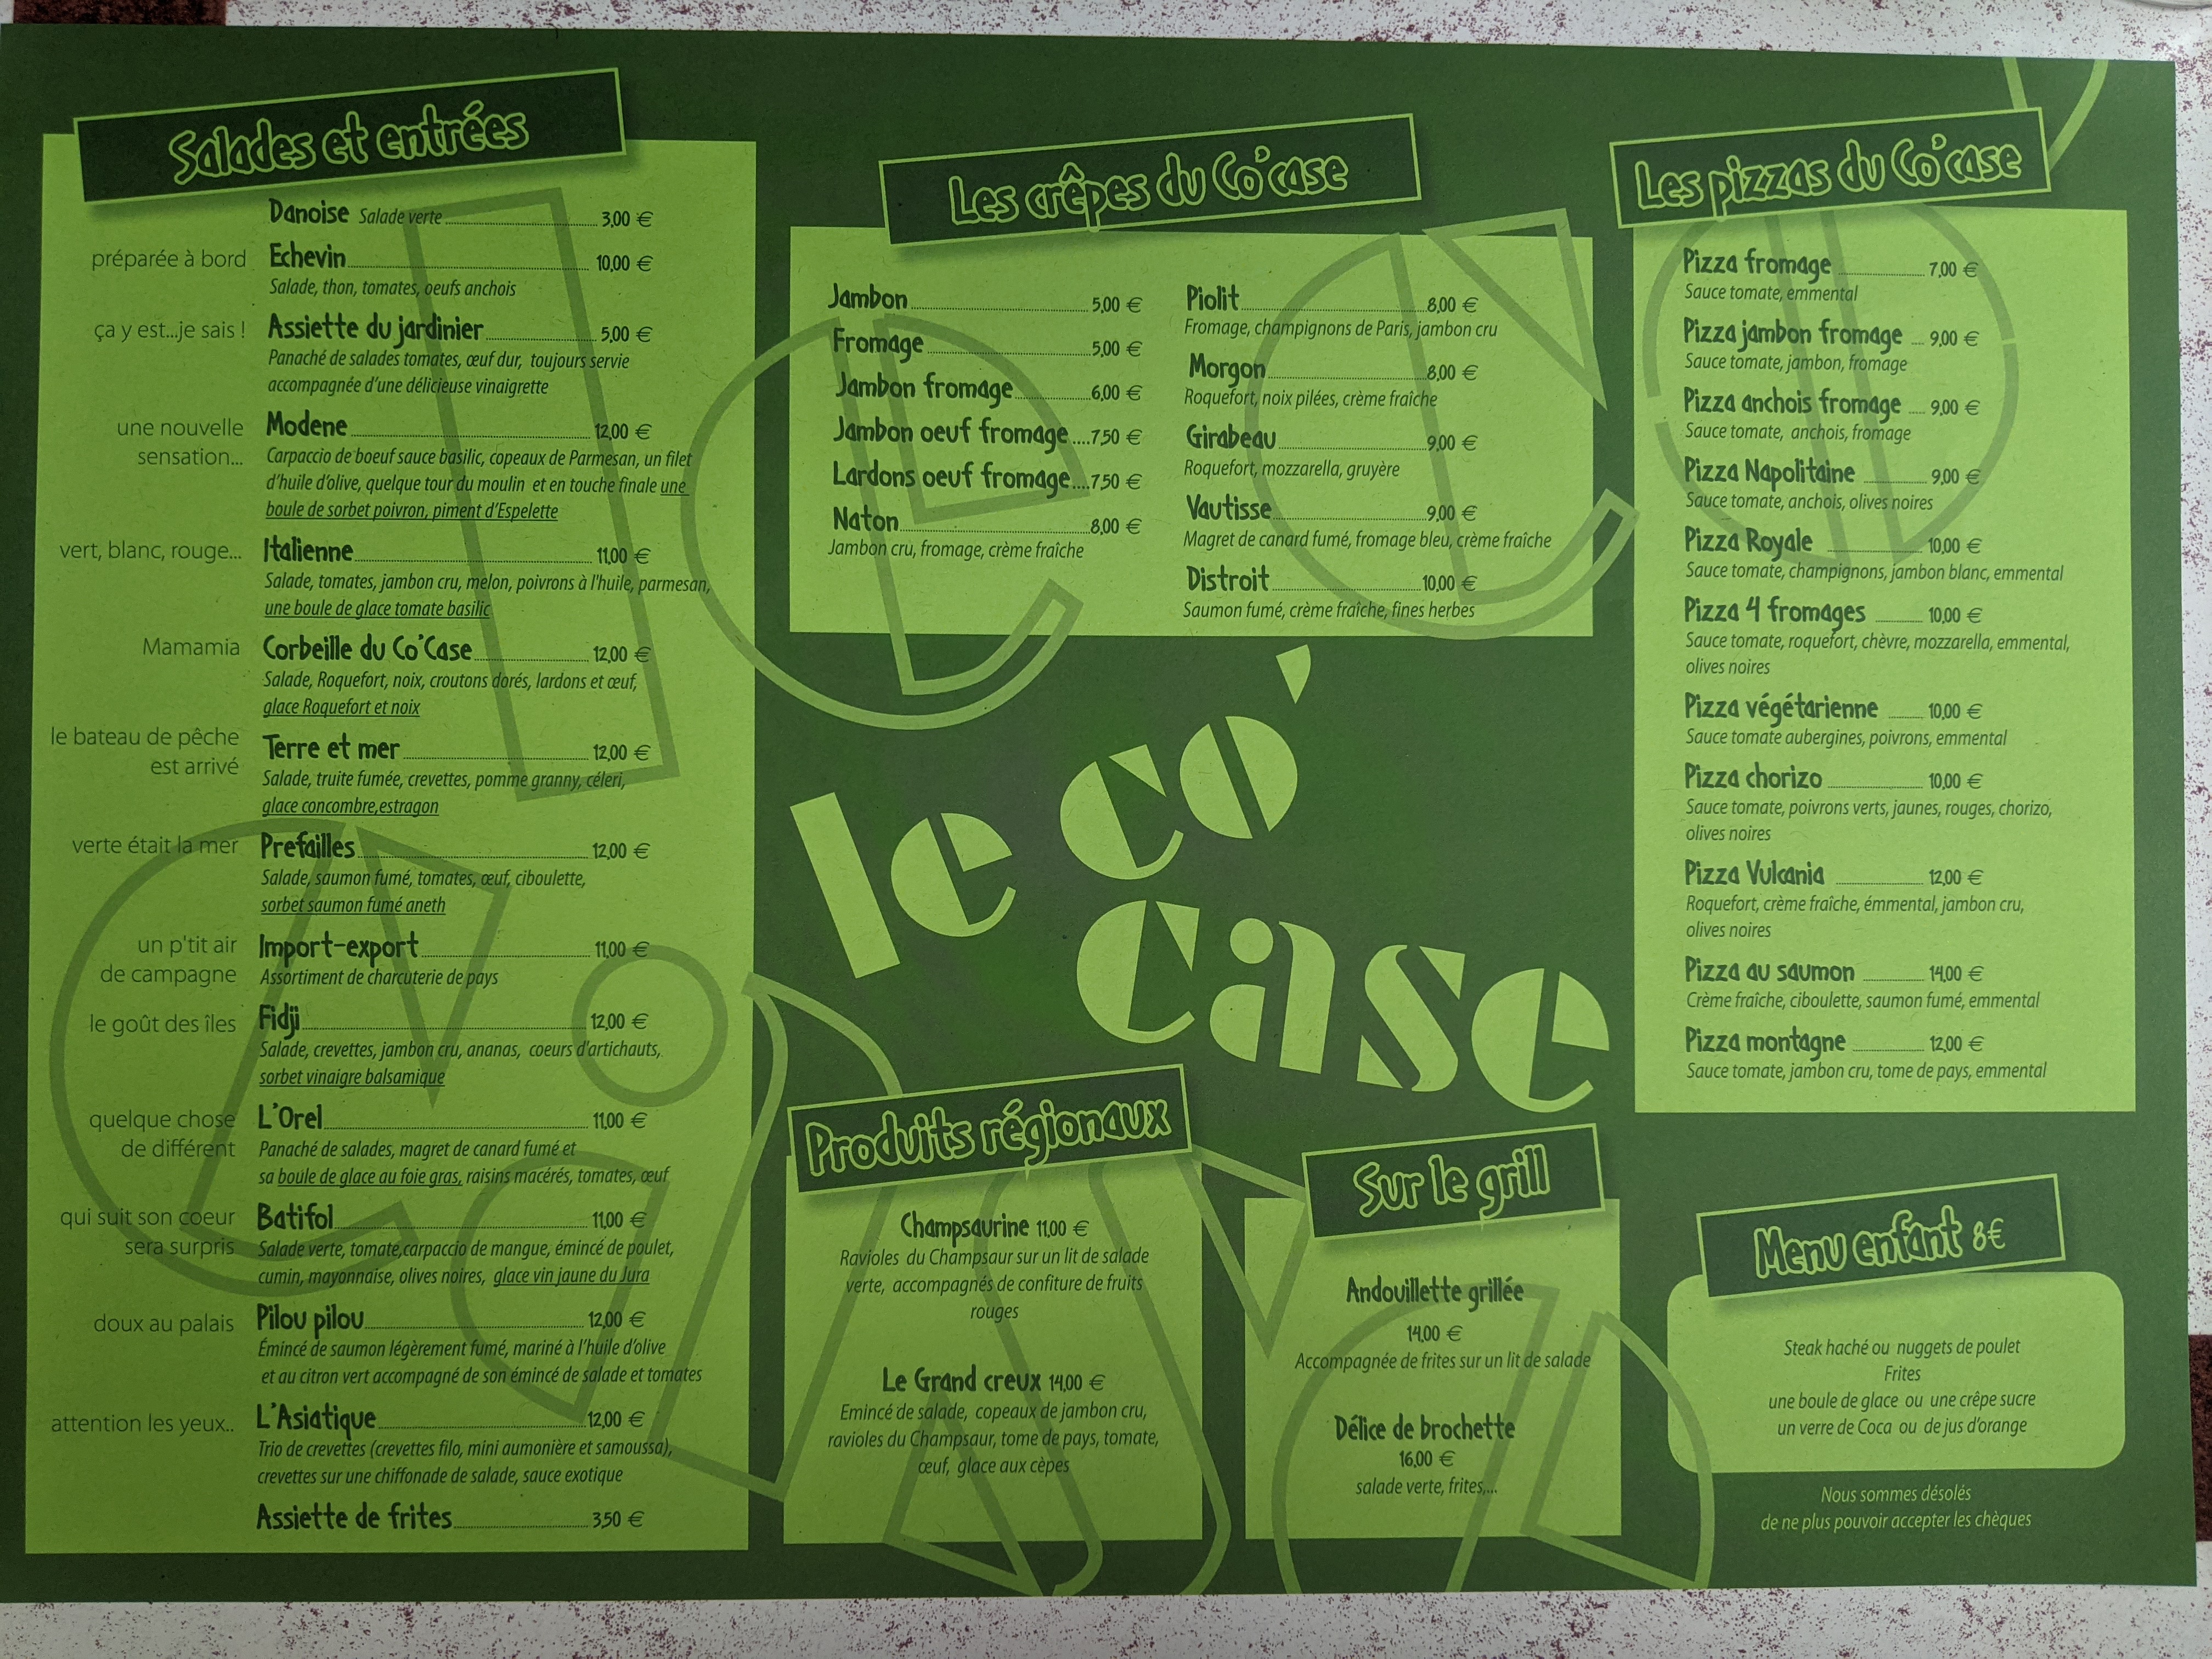 Salades et entrées
Danoise Salade verte 3,00 €
préparée à bord Echevin 10,00 €
Salade, thon, tomates, oeufs anchois
ça y est...je sais ! Assiette du jardinier 5,00 €
Panaché de salades tomates, œuf dur, toujours servie
accompagnée d'une délicieuse vinaigrette
une nouvelle
sensation...
Modene 12,00 €
Carpaccio de boeuf sauce basilic, copeaux de Parmesan, un filet
d'huile d'olive, quelque tour du moulin et en touche finale une
boule de sorbet poivron, piment d'Espelette
vert, blanc, rouge... Italienne 11,00 €
Salade, tomates, jambon cru, melon, poivrons à l'huile, parmesan,
une boule de glace tomate basilic
Mamamia Corbeille du Co'Case 12,00 €
Salade, Roquefort, noix, croutons dorés, lardons et œuf,
glace Roquefort et noix
le bateau de pêche
est arrivé
Terre et mer 12,00 €
Salade, truite fumée, crevettes, pomme granny, céleri,
glace concombre,estragon
verte était la mer Prefailles 12,00 €
Salade, saumon fumé, tomates, œuf, ciboulette,
sorbet saumon fumé aneth
un p'tit air
de campagne
Import-export 11,00 €
Assortiment de charcuterie de pays
le goût des îles Fidji 12,00 €
Salade, crevettes, jambon cru, ananas, coeurs d'artichauts,
sorbet vinaigre balsamique
quelque chose
de différent
L'Orel 11,00 €
Panaché de salades, magret de canard fumé et
sa boule de glace au foie gras, raisins macérés, tomates, œuf
qui suit son coeur
sera surpris
Batifol 11,00 €
Salade verte, tomate,carpaccio de mangue, émincé de poulet,
cumin, mayonnaise, olives noires, glace vin jaune du Jura
doux au palais Pilou pilou 12,00 €
Émincé de saumon légèrement fumé, mariné à l'huile d'olive
et au citron vert accompagné de son émincé de salade et tomates
attention les yeux.. L'Asiatique 12,00 €
Trio de crevettes (crevettes filo, mini aumonière et samoussa),
crevettes sur une chiffonade de salade, sauce exotique
Assiette de frites 3,50 €
Les crêpes du Co'case
Jambon 5,00 €
Fromage 5,00 €
Jambon fromage 6,00 €
Jambon oeuf fromage ....7,50 €
Lardons oeuf fromage ....7,50 €
Naton 8,00 €
Jambon cru, fromage, crème fraîche
Piolit 8,00 €
Fromage, champignons de Paris, jambon cru
Morgon 8,00 €
Roquefort, noix pilées, crème fraîche
Girabeau 9,00 €
Roquefort, mozzarella, gruyère
Vautisse 9,00 €
Magret de canard fumé, fromage bleu, crème fraîche
Distroit 10,00 €
Saumon fumé, crème fraîche, fines herbes
le co'
case
Produits régionaux
Champsaurine 11,00 €
Ravioles du Champsaur sur un lit de salade
verte, accompagnés de confiture de fruits
rouges
Le Grand creux 14,00 €
Emincé de salade, copeaux de jambon cru,
ravioles du Champsaur, tome de pays, tomate,
œuf, glace aux cèpes
Sur le grill
Andouillette grillée
14,00 €
Accompagnée de frites sur un lit de salade
Délice de brochette
16,00 €
salade verte, frites,...
Les pizzas du Co'case
Pizza fromage 7,00 €
Sauce tomate, emmental
Pizza jambon fromage 9,00 €
Sauce tomate, jambon, fromage
Pizza anchois fromage 9,00 €
Sauce tomate, anchois, fromage
Pizza Napolitaine 9,00 €
Sauce tomate, anchois, olives noires
Pizza Royale 10,00 €
Sauce tomate, champignons, jambon blanc, emmental
Pizza 4 fromages 10,00 €
Sauce tomate, roquefort, chèvre, mozzarella, emmental,
olives noires
Pizza végétarienne 10,00 €
Sauce tomate aubergines, poivrons, emmental
Pizza chorizo 10,00 €
Sauce tomate, poivrons verts, jaunes, rouges, chorizo,
olives noires
Pizza Vulcania 12,00 €
Roquefort, crème fraîche, émmental, jambon cru,
olives noires
Pizza au saumon 14,00 €
Crème fraîche, ciboulette, saumon fumé, emmental
Pizza montagne 12,00 €
Sauce tomate, jambon cru, tome de pays, emmental
Menu enfant 8€
Steak haché ou nuggets de poulet
Frites
une boule de glace ou une crêpe sucre
un verre de Coca ou de jus d'orange
Nous sommes désolés
de ne plus pouvoir accepter les chèques